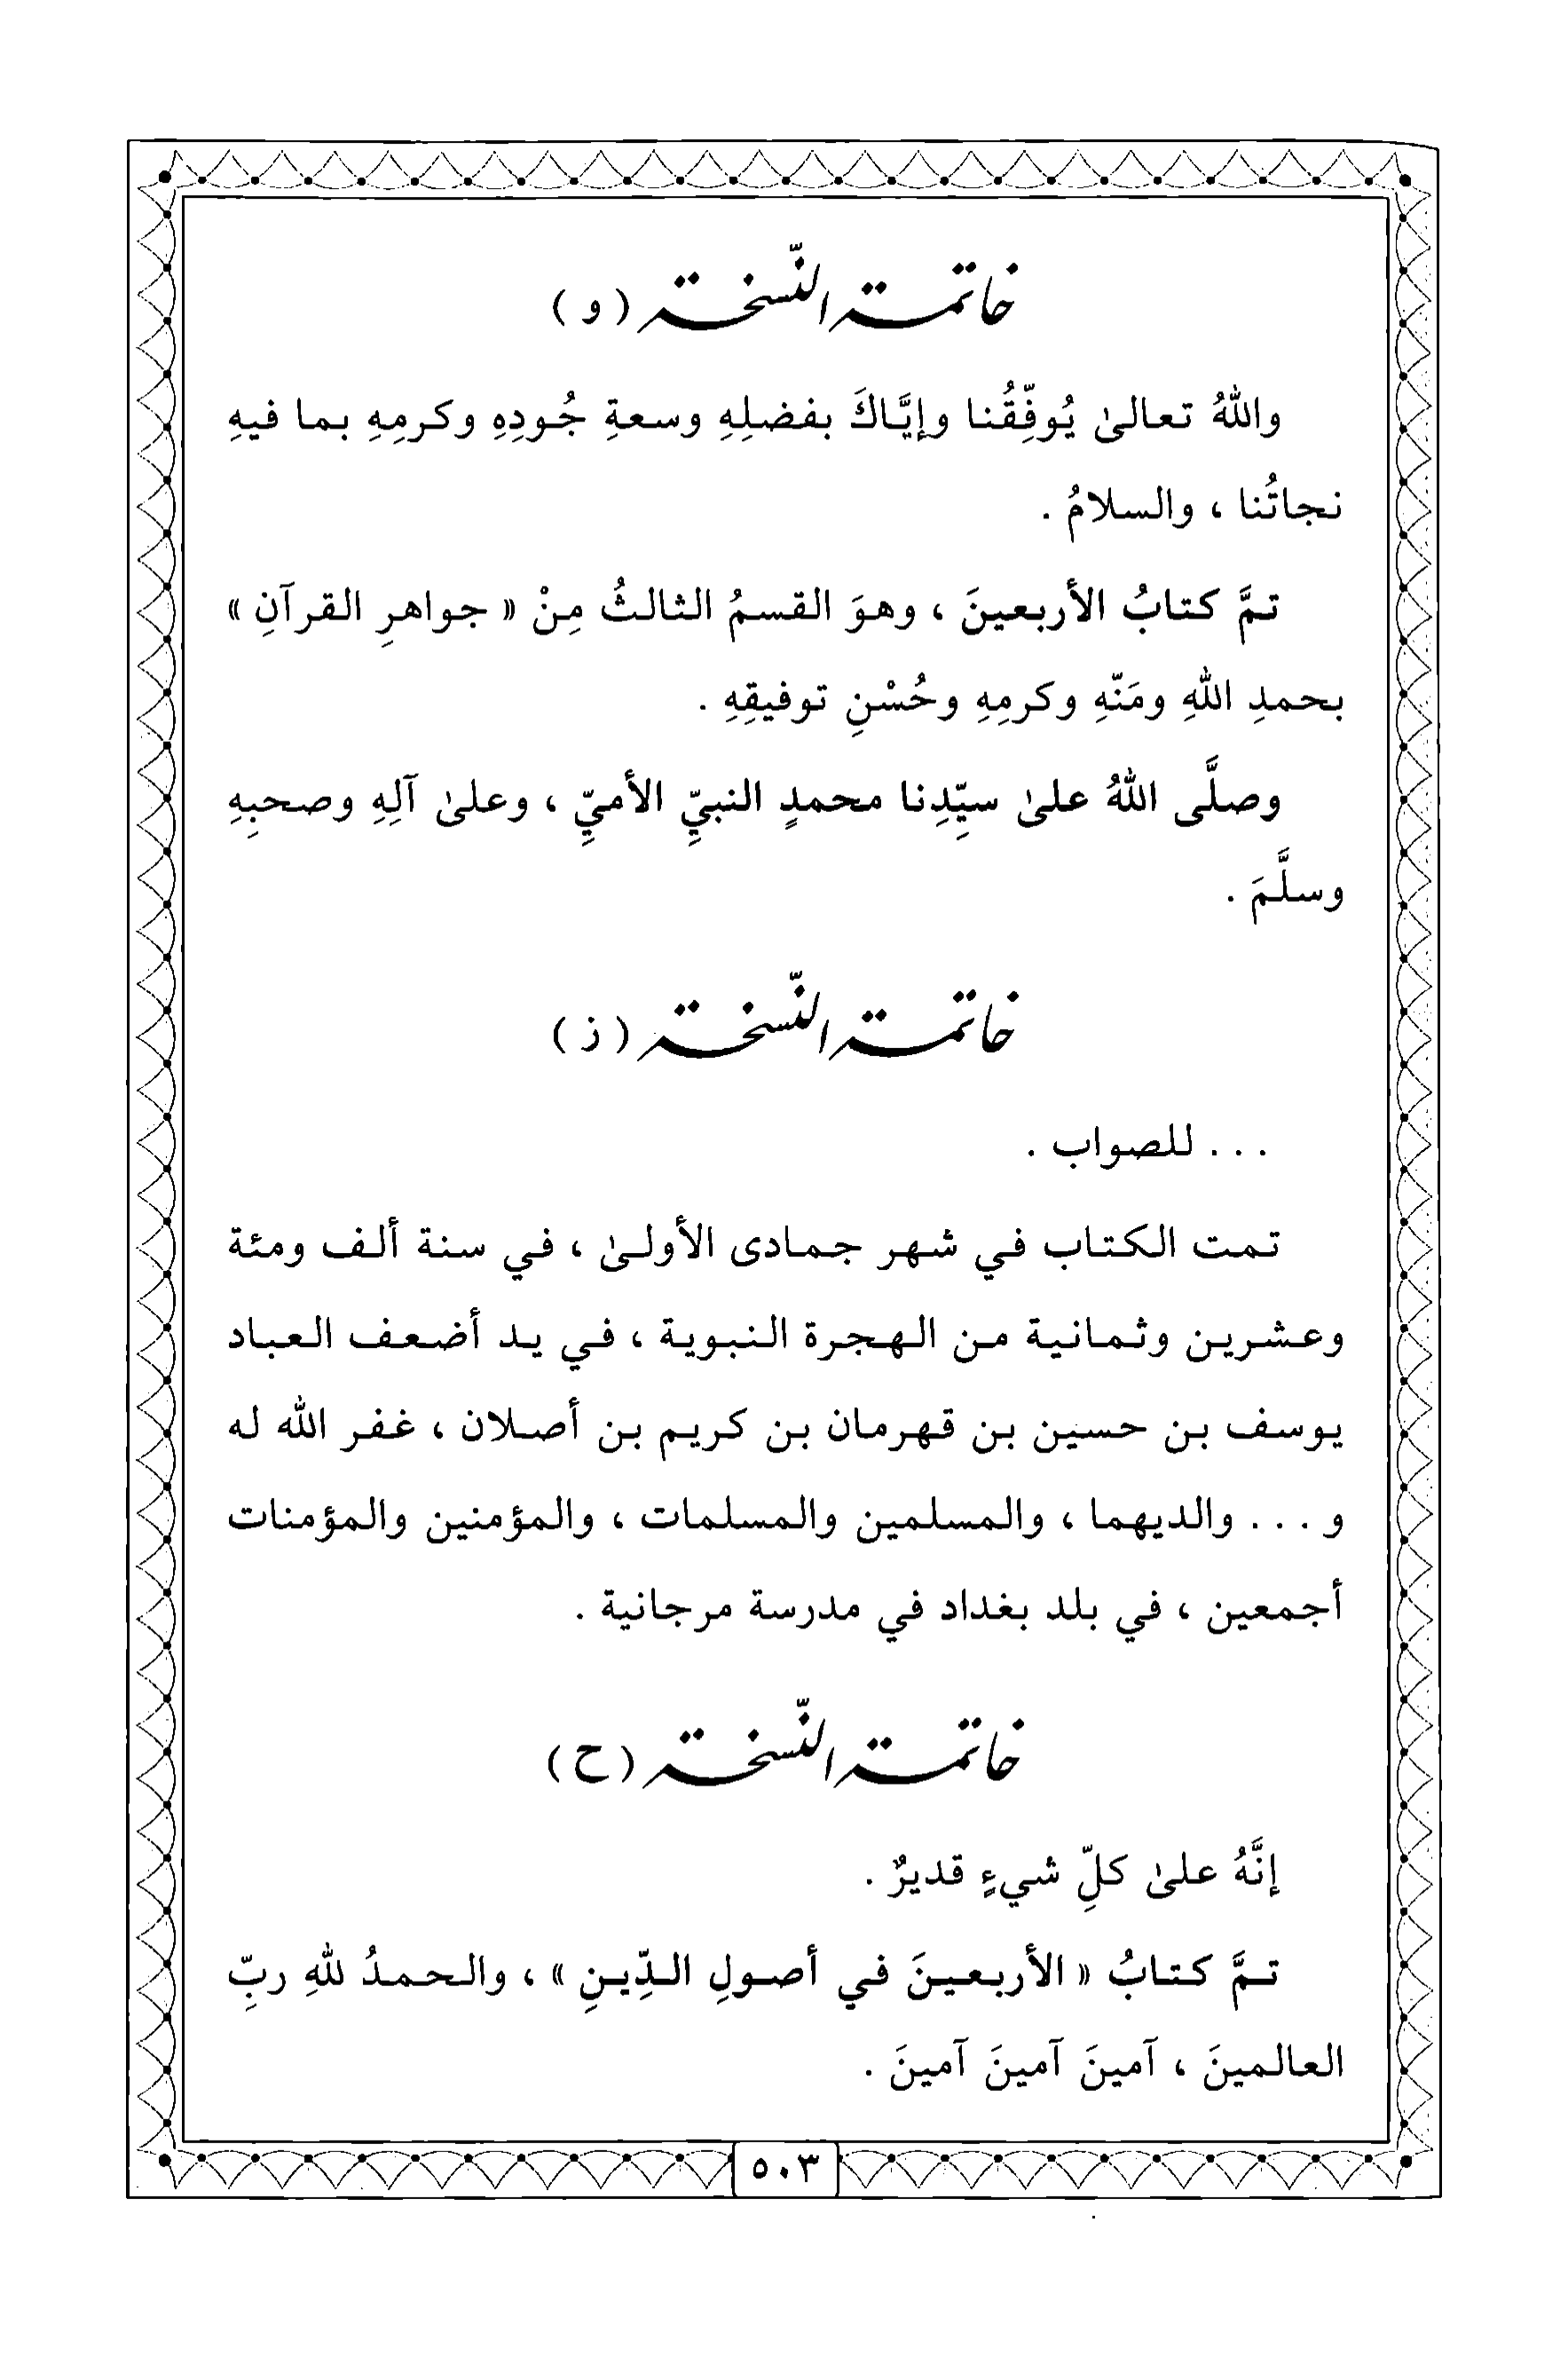 خاتمة النّسخة ( و )
واللهُ تعالىٰ يُوفِّقُنا وإيَّاكَ بفضلِهِ وسعةِ جُودِهِ وكرمِهِ بما فيهِ
نجاتُنا ، والسلامُ .
تمَّ كتابُ الأربعينَ ، وهوَ القسمُ الثالثُ مِنْ « جواهرِ القرآنِ »
بحمدِ اللهِ ومَنّهِ وكرمِهِ وحُسْنِ توفيقِهِ .
وصلَّى اللهُ علىٰ سيِّدِنا محمدٍ النبيِّ الأميِّ ، وعلىٰ آلِهِ وصحبِهِ
وسلَّمَ .
خاتمة النّسخة ( ز )
. . . للصواب .
تمت الكتاب في شهر جمادى الأولىٰ ، في سنة ألف ومئة
وعشرين وثمانية من الهجرة النبوية ، في يد أضعف العباد
يوسف بن حسين بن قهرمان بن كريم بن أصلان ، غفر الله له
و . . . والديهما ، والمسلمين والمسلمات ، والمؤمنين والمؤمنات
أجمعين ، في بلد بغداد في مدرسة مرجانية .
خاتمة النّسخة ( ح )
إنَّهُ علىٰ كلِّ شيءٍ قديرٌ .
تمَّ كتابُ « الأربعينَ في أصولِ الدِّينِ » ، والحمدُ للهِ ربِّ
العالمينَ ، آمينَ آمينَ آمينَ .
٥٠٣